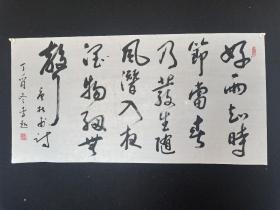 好雨知時
節當春
乃發生隨
風潛入夜
潤物細無
聲
杜甫诗
丁酉冬李